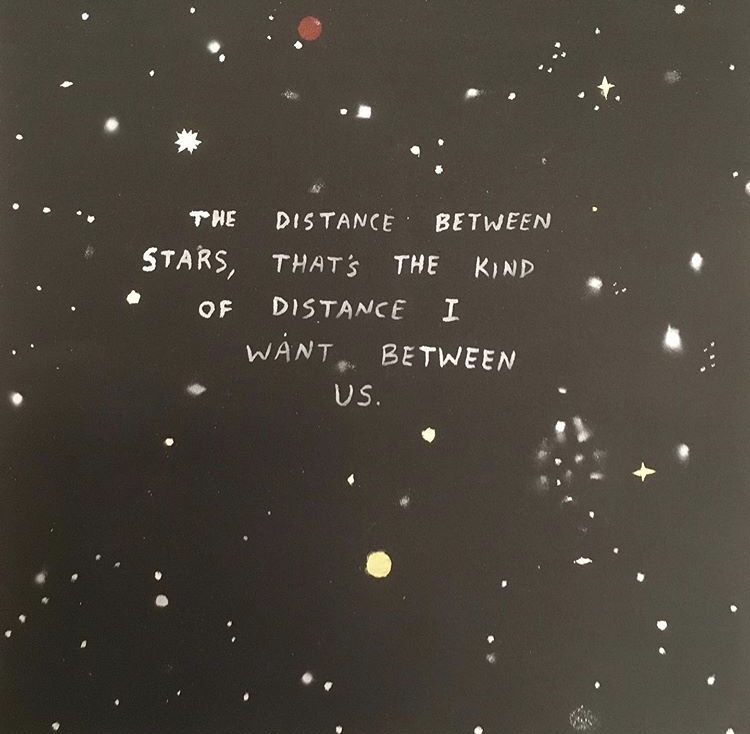 THE DISTANCE BETWEEN
STARS, THAT'S THE KIND
OF DISTANCE I
WANT BETWEEN
US.